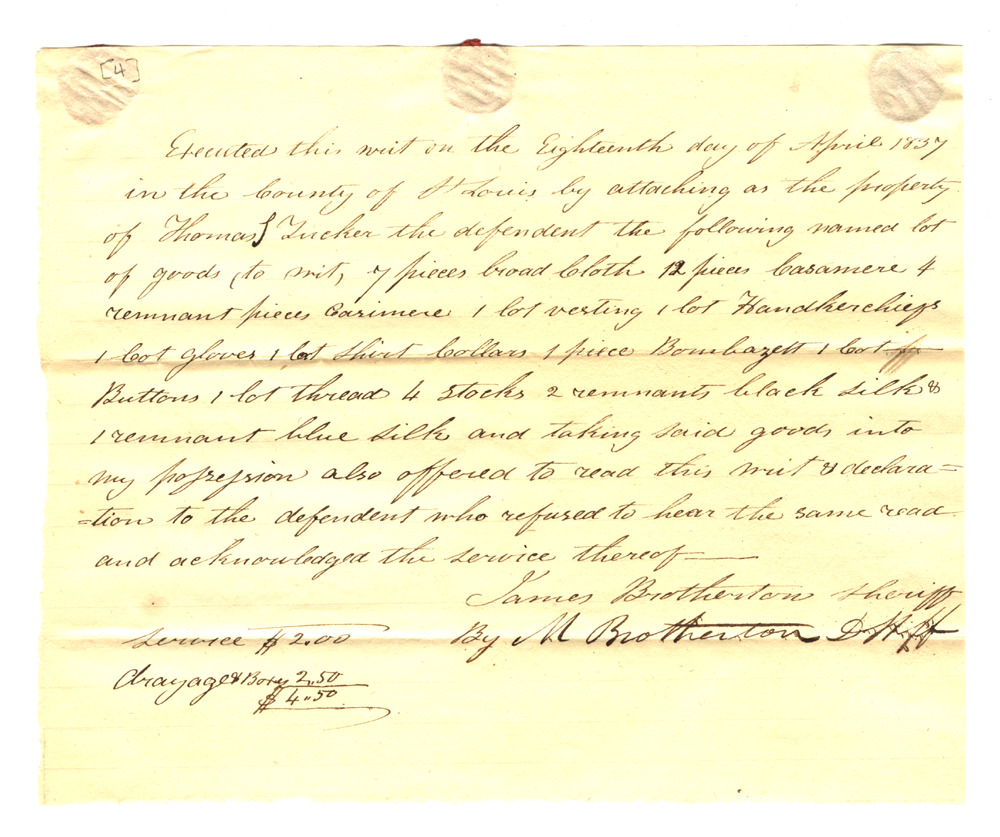 [4]
Executed this writ on the Eighteenth day of April 1837
in the County of St Louis by attaching as the property
of Thomas J Tucker the defendent the following named lot
of goods (to wit, 7 pieces broad Cloth 12 pieces Casamere 4
remnant pieces Casimere 1 lot vesting 1 lot Handkerchiefs
1 Lot gloves 1 lot Shirt Collars 1 piece Bombazett 1 Lot
Buttons 1 lot thread 4 Stocks 2 remnants black Silk &
1 remnant blue Silk and taking said goods into
my possession also offered to read this writ & declara=
=tion to the defendent who refused to hear the same read
and acknowledged the service thereof
James Brotherton Sheriff
By M Brotherton D Shff
Service $2.00
drayage & Boxes 2.50
$4.50